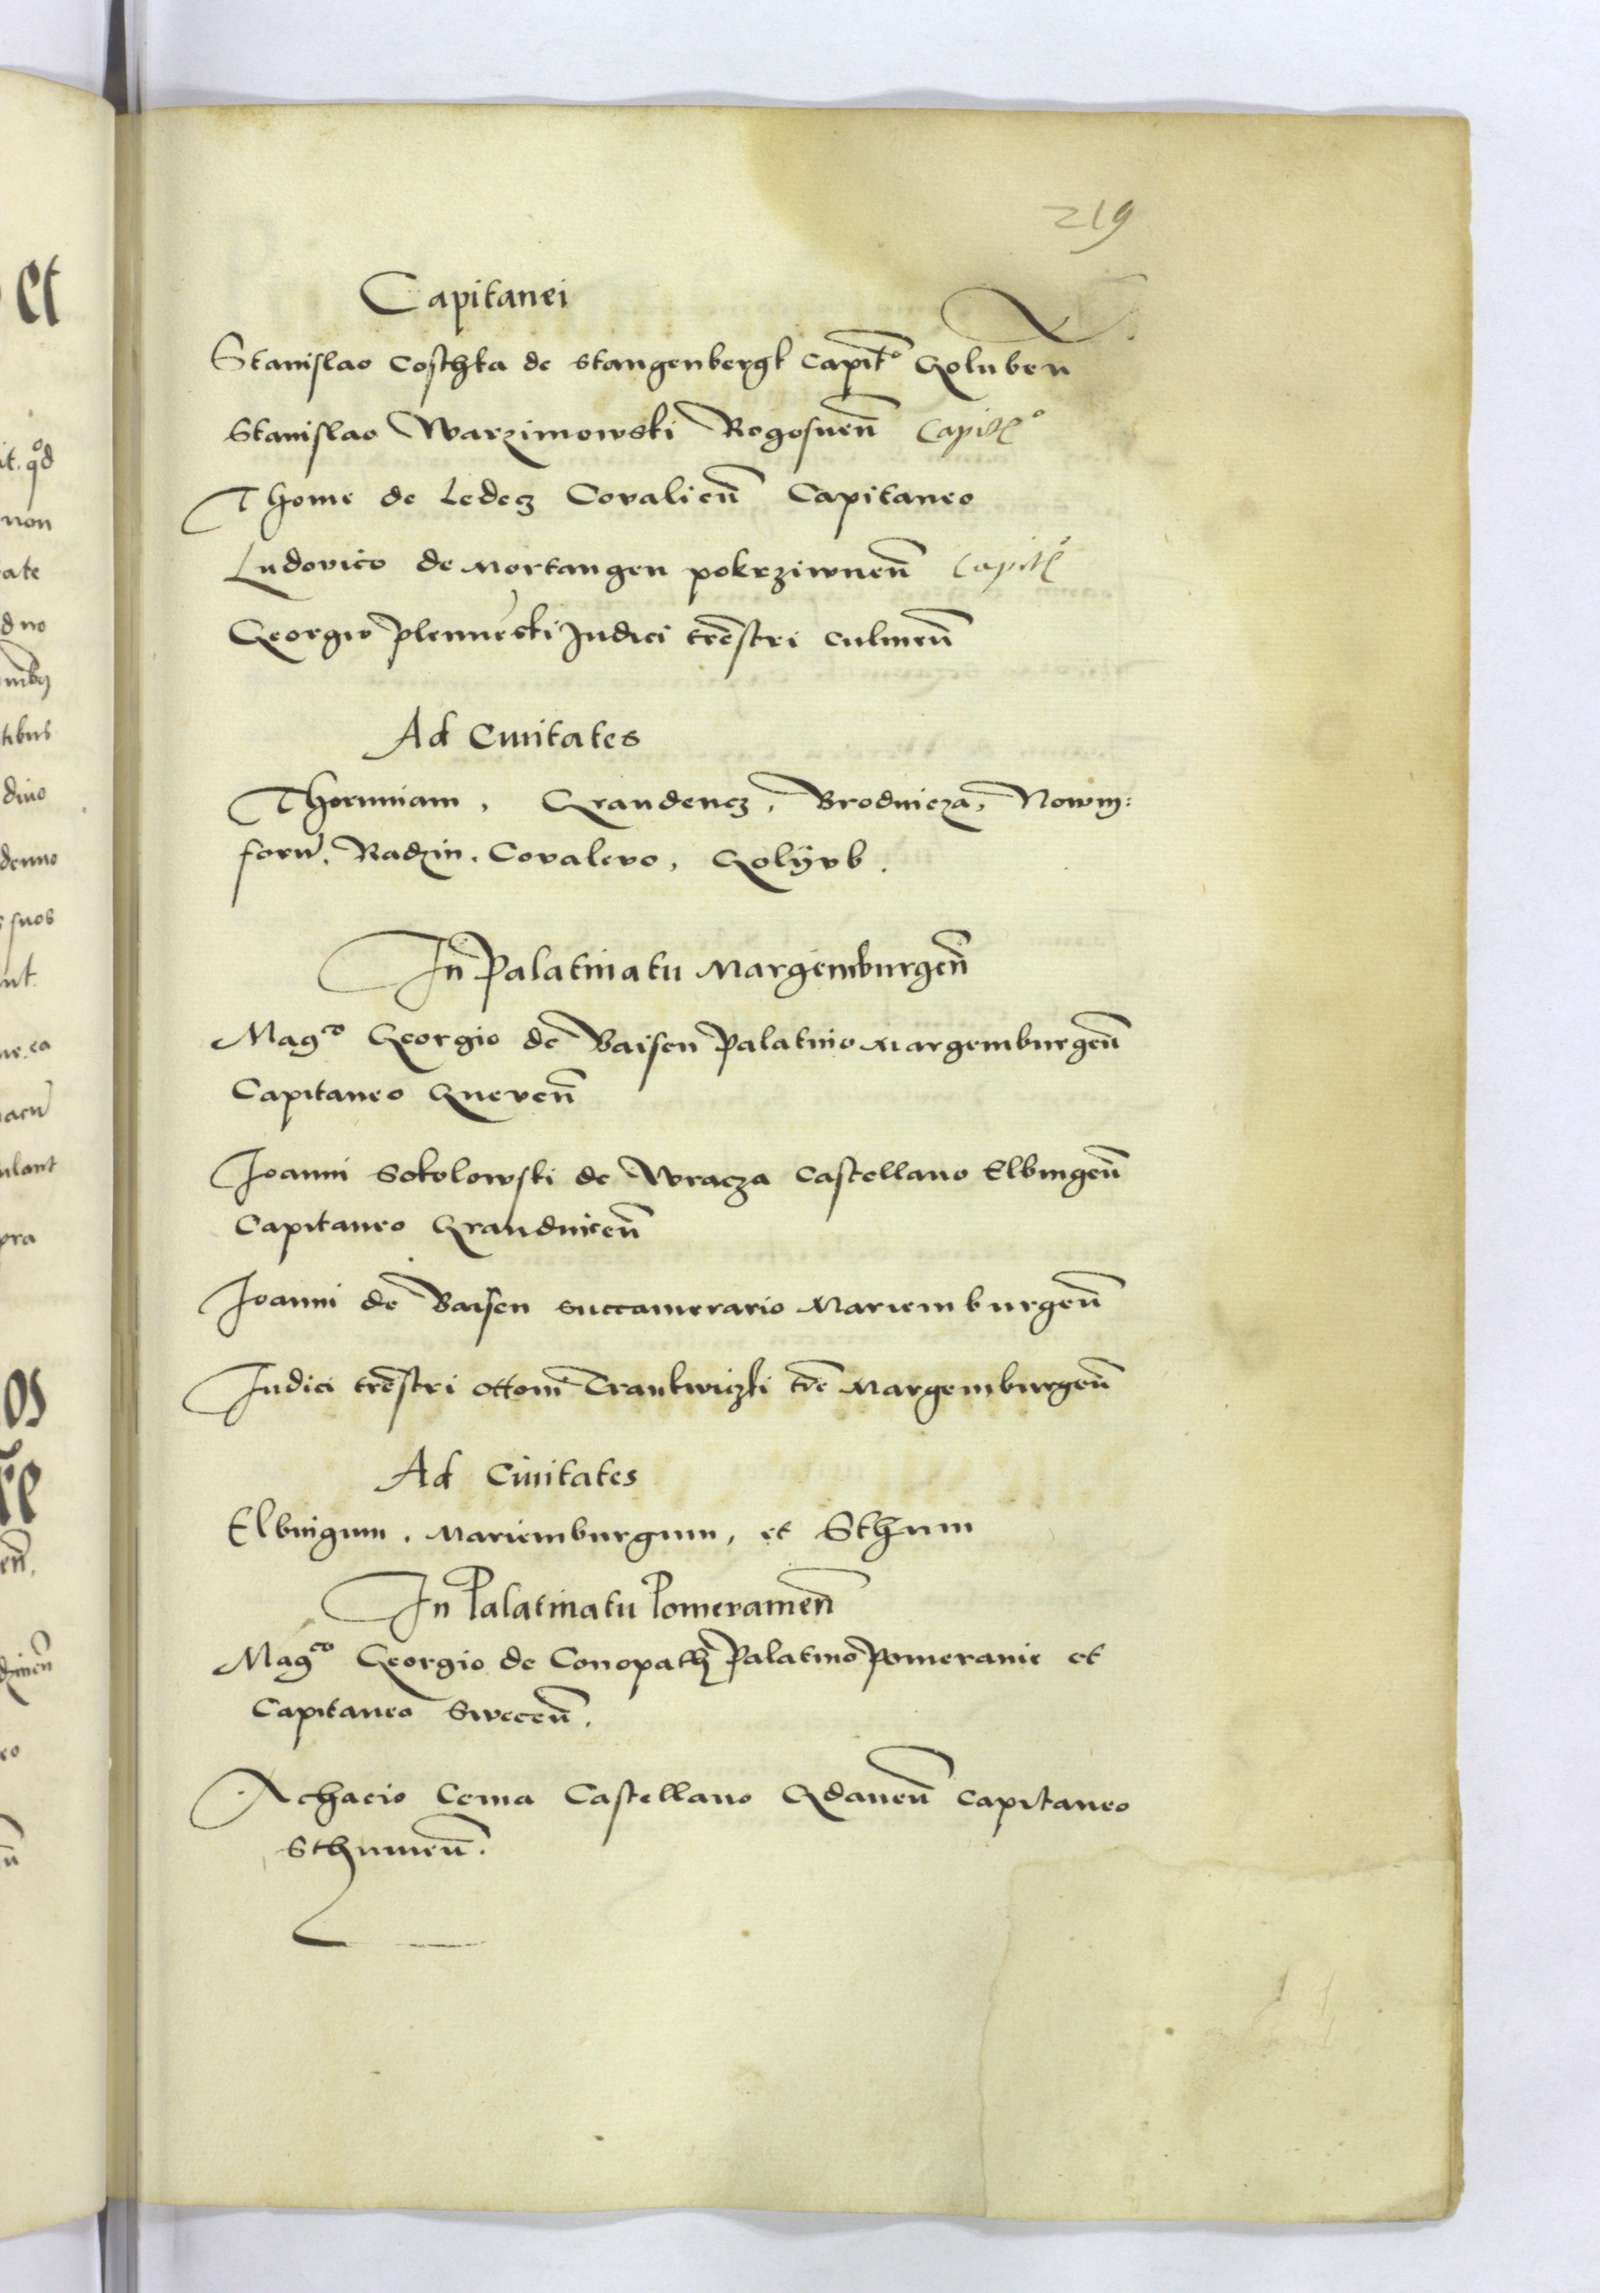 219
Capitanei
Stanislao Coschka de Stangenbergk Capit° Goluben̄
Stanislao Warzimowski Rogosnen̄ Capit°
Thome de Ledecz Covalien̄ Capitaneo
Ludovico de Mortangen pokrziwnen̄ Capit°
Georgio plemeski Judici tr̄estri Culmen̄
Ad Ciuitates
Thoruniam, Graudencz, Brodnicza, Nowm:
forū, Radzin, Covalevo, Golyvb.
In Palatinatu Margemburgen̄
Mag^co Georgio de Baisen Palatino Margemburgen̄
Capitaneo Gneven̄
Joanni Sokolowski de Wracza Castellano Elbingen̄
Capitaneo Graudnicen̄
Joanni de Baisen Succamerario Mariemburgen̄
Judici tr̄estri Ottoni Trankwiczki tr̄e Margemburgen̄
Ad Ciuitates
Elbingum, Mariemburgum, et Sthum
In Palatinatu Pomeranien̄
Mag^co Georgio de Conopath Palatino Pomeranie et
Capitaneo Swecen̄.
Achacio Cema Castellano Gdanen̄ Capitaneo
Sthumen̄.
et
it. qd
non
ate
tibus
suos
nt
pra
os